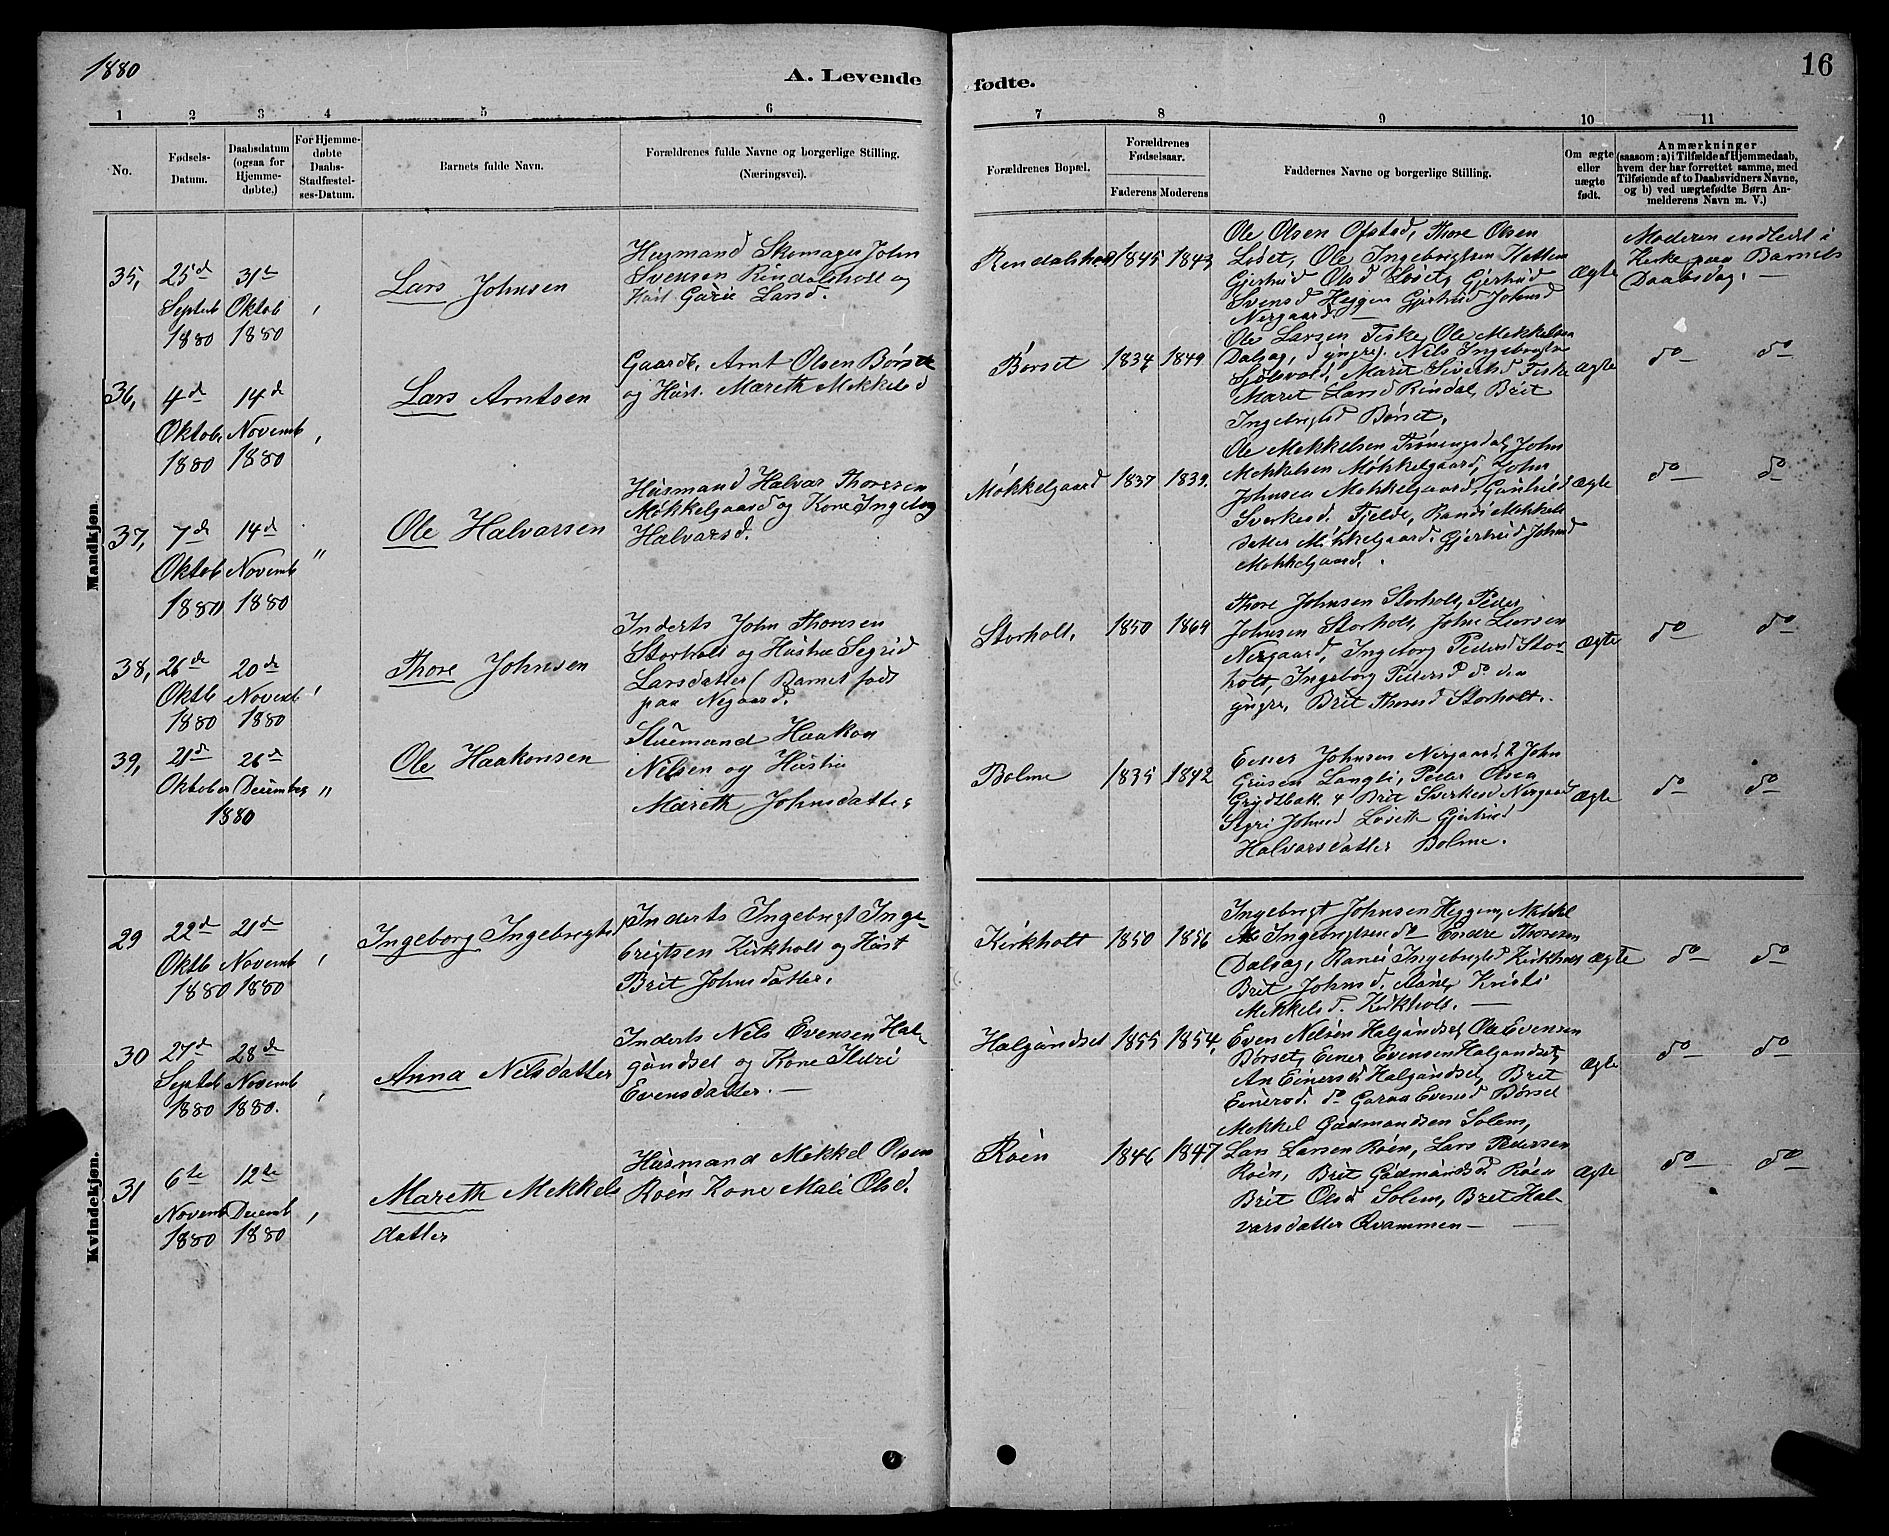 1880
A. Levende
fødte.
16
1 2 3 4 5 6 7 8 9 10 11
No.
Fødsels-
Datum.
Daabsdatum
(ogsaa for
Hjemme-
døbte.)
For Hjemme-
døbte
Daabs-
Stadfæstel-
ses-Datum.
Barnets fulde Navn.
Forældrenes fulde Navne og borgerlige Stilling.
(Næringsvei).
Forældrenes Bopæl.
Forældrenes
Fødselsaar.
Faderens Moderens
Faddernes Navne og borgerlige Stilling.
Om ægte
eller
uægte
født.
Anmærkninger
(saasom: a) i Tilfælde af Hjemmedaab,
hvem der har forrettet samme, med
Tilføiende af to Daabsvidners Navne,
og b) ved uægtefødte Børn An-
melderens Navn m. V.)
Mandkjøn.
35,
25de
Septeb
1880
31te
Oktob
1880
Lars Johnsen
Husmand Skomager John
Svensen Rindalsholt og
Hust. Larsd.
1845
Ole Olsen Ofstad, Thore Olsen
Løset, Ole Ingebrigtsen
Gjertrud Olsd Løset, Gjertrud
Svensd Heggem Gjertrud Johnsd
Nergaard —
Ægte
Moderen indledet i
Kirke paa Barnets
Daabsdag. —
36,
4de
Oktob.
1880
14de
Novemb
1880
Lars Arntsen
Gaardb. Arnt Olsen Børset
og Hust. Mareth Mekkelsd
Børset
1834
1849
Ole Larsen Fiske, Ole Mekkelsen
Dalsag, d yngre, Nils Ingebrigtse
Marit Siversd Fiske
Maret Larsd Rindal, Brit
Ingebrigtsd Børset.
Ægte
do do
37,
7de
Oktob
1880
14de
Novemb
1880
Ole Halvarsen
Husmand Halvar Thoresen
Møkkelgaard og Kone Ingebog
Halvarsd.
Møkkelgaard
1837
1839.
Ole Mekkelsen John
Mekkelsen Møkkelgaard, John
Johnsen Møkkelgaard, Gunhild
Sverkesd. Fjelde, Randi Mekkels
datter Møkkelgaard. Gjertrud Johnsd
Møkkelgaard.
Ægte
do do
38,
26de
Oktb
1880
20de
Novemb
1880
Thore Johnsen
Inderts John Thoresen
Storholt og Hustru Segrid
Larsdatter (Barnet født
paa Negaard.
Storholt.
1850
Thore Johnsen Storholt, Peder
Johnsen Storholt, John Larsen
Nergaard, Ingeborg Pedersd Stor-
holt, Ingeborg Pedersd do den
yngre, Brit Thoresd Storholt.
Ægte
do do
39,
21de
Oktober
26de
Decemberg
1880
Ole Haakonsen
Stuemand Haakon
Nilsen og Hustru
Mareth Johnsdatter
Bolme
1835
1842
Einer Johnsen Nergaard, John
Langli, Peder Olsen
Grytbak Brit Sverkesd Nergaard
Segri Johnsd Løseth Gjertrud
Halvarsdatter Bolme.
Ægte
do do
Kvindekjøn.
29
22de
Oktb
1880
21de
Novemb
1880
Ingeborg Ingebrigts
Inderts Ingebrigt Inge-
brigtsen Kirkholt og Hust
Brit Johnsdatter.
Kirkholt
1850
1856
Ingebrigt Johnsen Heggem, Mekkel
Ingebrigtsen do Endre Thoresen
Dalsag, Ranei Ingebrigtsd Kirkholt
Brit Johnsd. Kristi
Mekkelsd. Kirkholt. —
Ægte
do do
30
27de
Septeb
1880
28de
Novemb
1880.
Anna Nilsdatter
Inderts Nils Evensen Hal-
gundset og Kone Sluri
Evensdatter. —
Halgundset
1855
1854,
Even Nilsen Halgundset, Ole Evensen
Børset, Einer Evensen Halgundset,
An Einersd Halgundset, Brit
Einersd. do Evensd Børset
Ægte
do do
31
6te
Novemb
1880
12te
Decemb
1880
Mareth Mekkels
datter
Husmand Mekkel Olsen
Røen Kone Mali Olsd.
Røen
1846
1847
Mekkel Gudmundsen Solem,
Lars Larsen Røen, Lars Pedersen
Røen, Brit Gudmundsd. Røen
Brit Olsd Solem, Bret Hal-
varsdatter Qvammen —
Ægte
do do